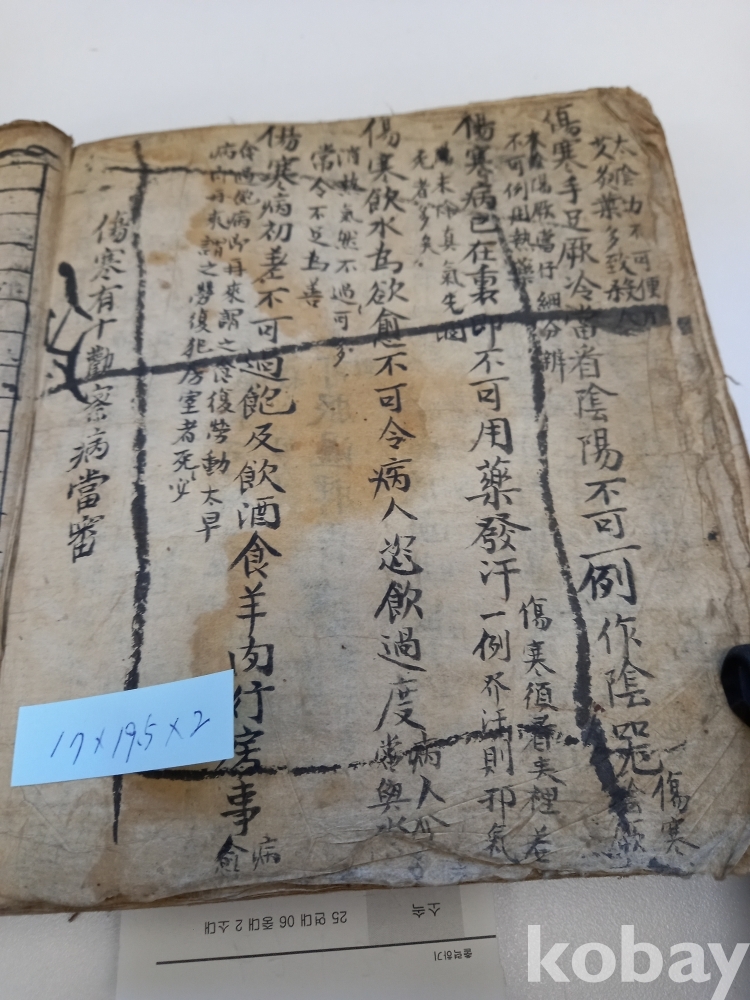 傷寒
太陰 不可便
藥多致殺人
傷寒手足厥冷當看陰陽不可一例作陰
陰陽厥當仔細分辨
不可例用熱藥
傷寒須看表裡若
傷寒病已在裏卽不可用藥發汗一例發汗則邪氣
未除真氣先涸
死者多矣
病人
傷寒飲水為欲愈不可令病人恣飲過度當與水
消 氣然不過可多
常令不足為善
病
傷寒病初差不可過飽及飲酒食羊肉行房事愈
食過飽病卽再來謂之食復勞動太早
病卽再來謂之勞復犯房室者死必
傷寒有十勸察病當審
17×19.5×2
25 연대 06 중대 2 소대
소속
출력하기
kobay